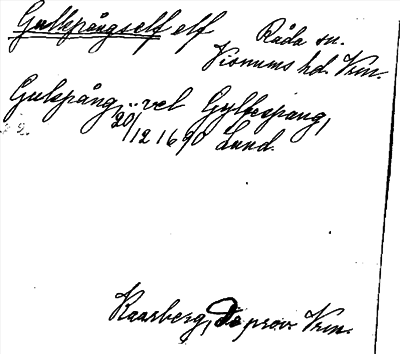 Gullspångself elf Råda sn.
Visnums hd. Vrm.
Gulspång, vel Gyllespang,
20/12 1690 Lund.
Kaarberg, De prov Vrm.